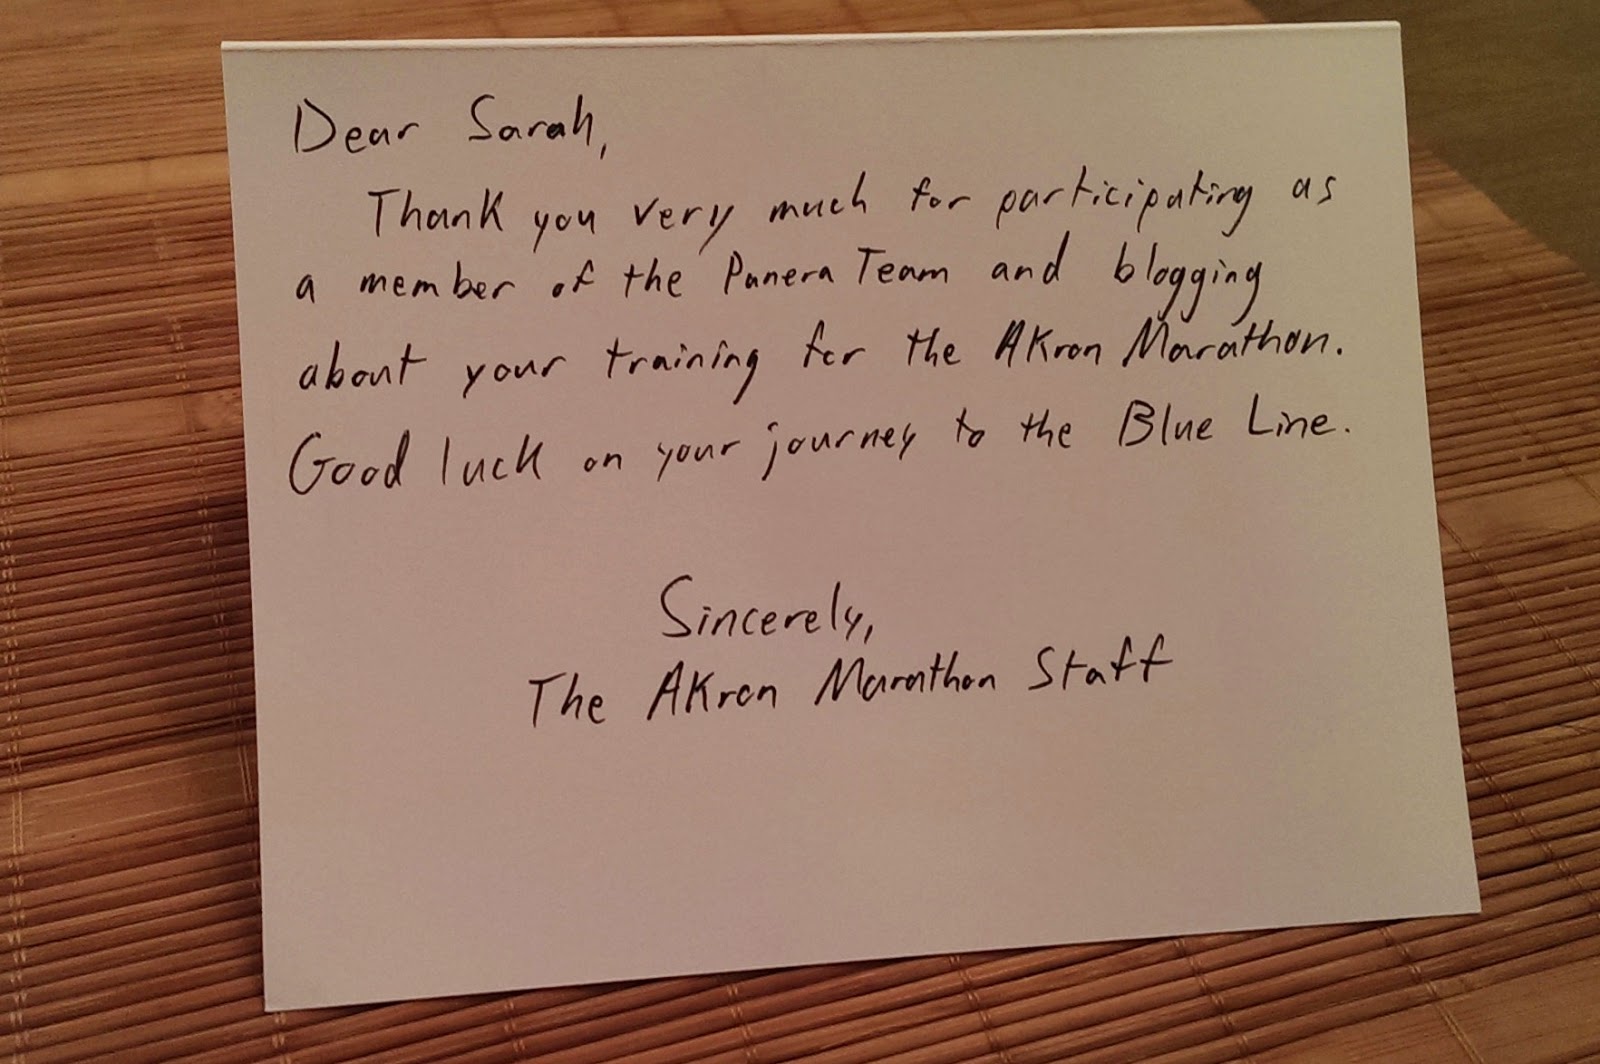 Dear Sarah,
Thank you very much for participating as
a member of the Panera Team and blogging
about your training for the Akron Marathon.
Good luck on your journey to the Blue Line.
Sincerely,
The Akron Marathon Staff